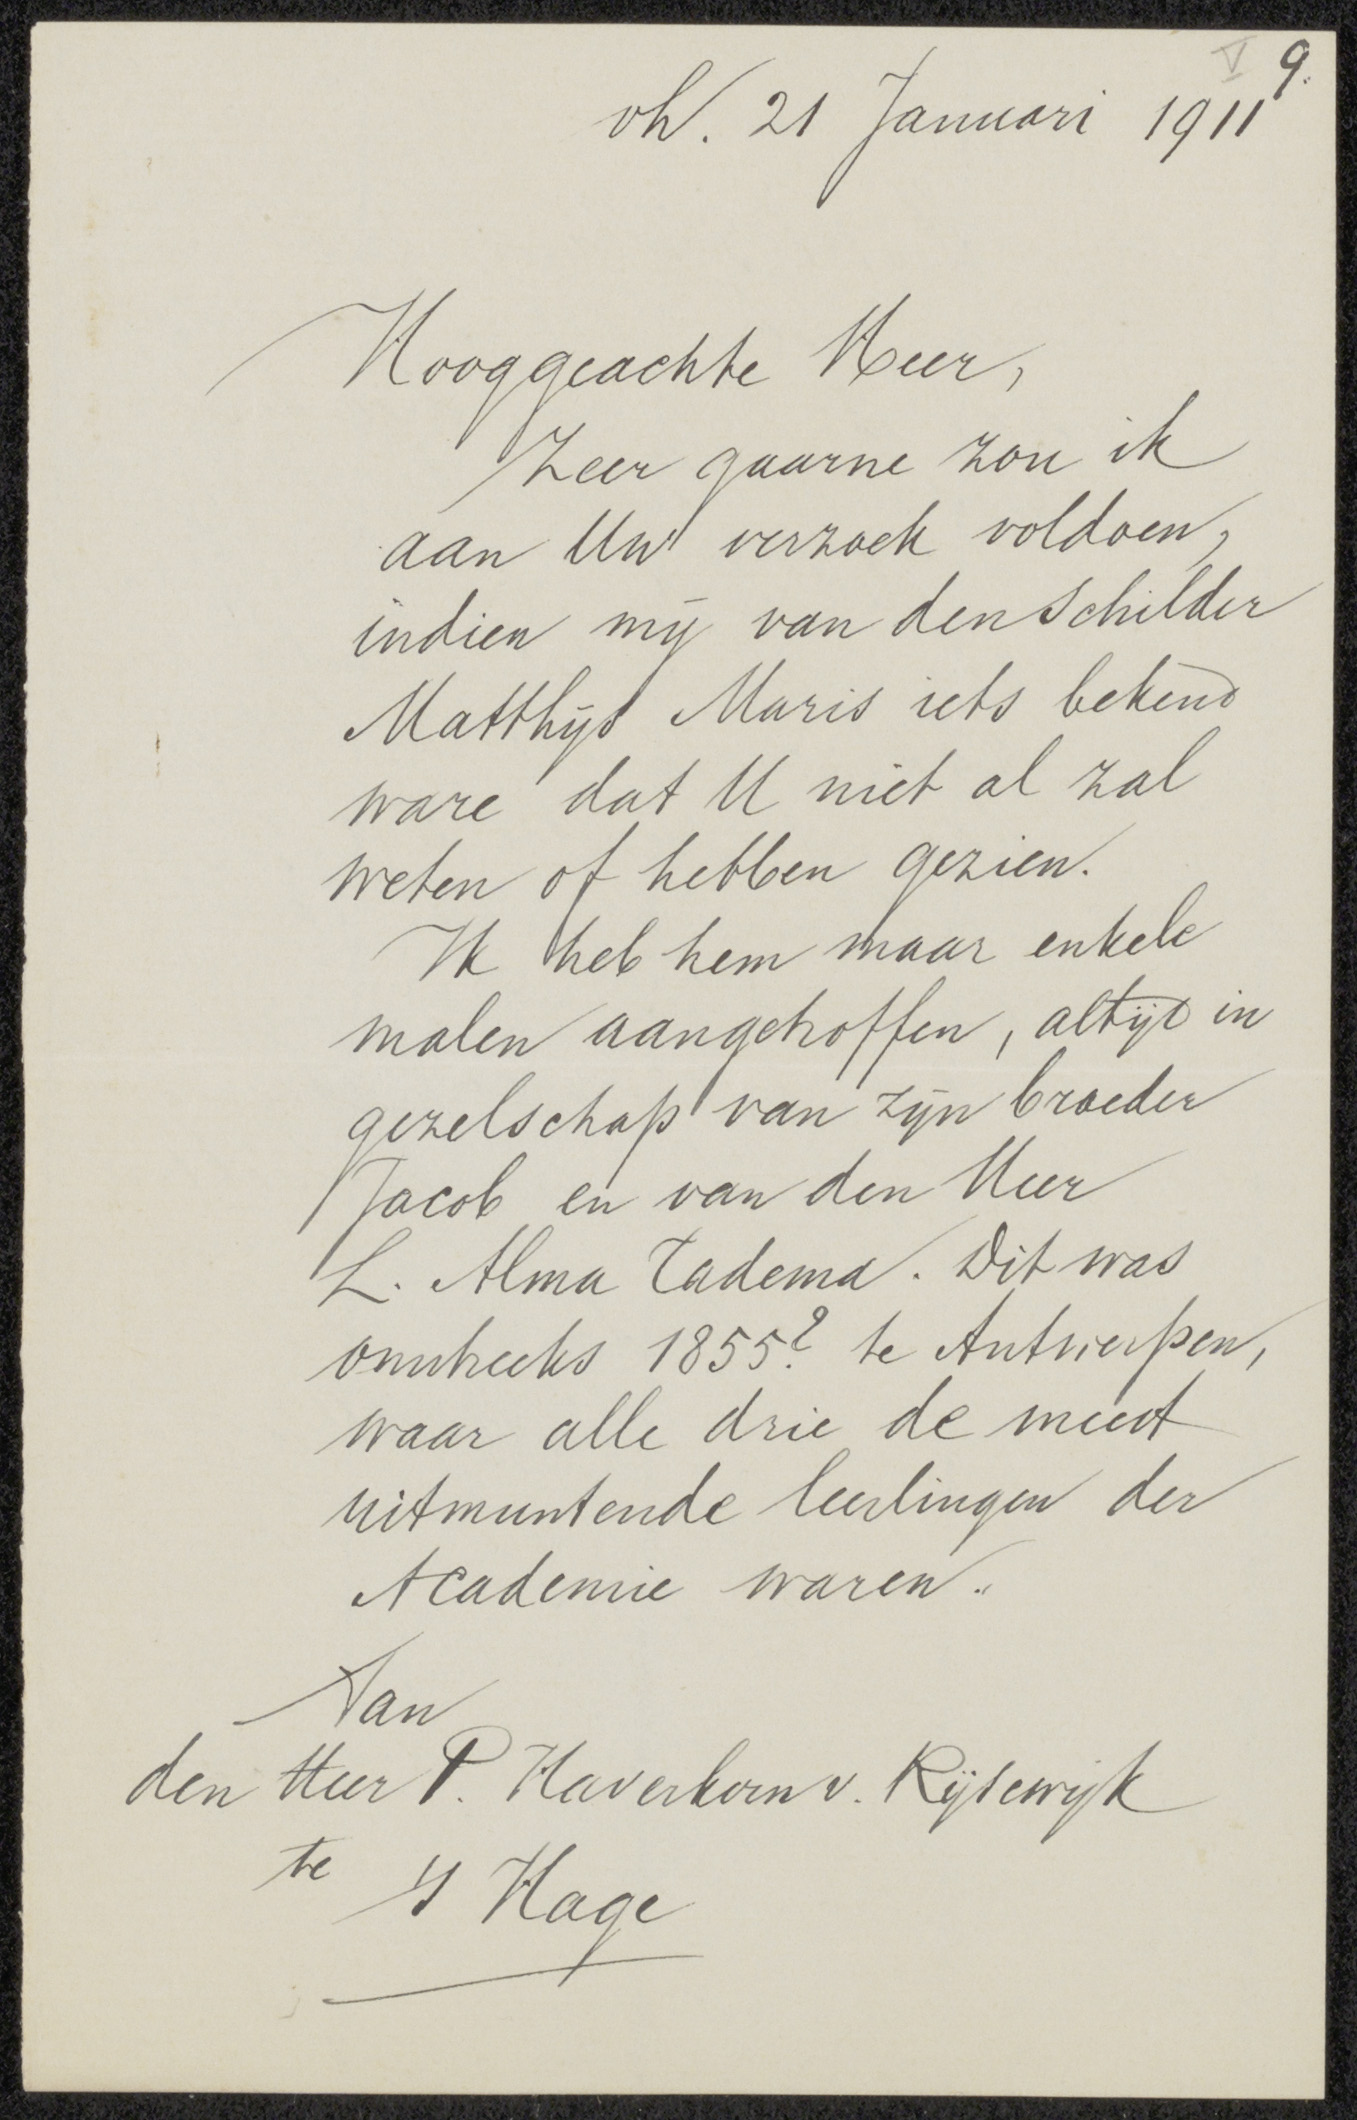 V 9.
vh. 21 Januari 1911
Hooggeachte Heer,
Zeer gaarne zou ik
aan Uw verzoek voldoen,
indien mij van den Schilder
Matthijs Maris iets bekend
ware dat U niet al zal
weten of hebben gezien.
Ik heb hem maar enkele
malen aangetroffen, altijd in
gezelschap van zijn broeder
Jacob en van den Heer
L. Alma Tadema. Dit was
omstreeks 1855? te Antwerpen,
waar alle drie de meest
uitmuntende leerlingen der
Academie waren.
Aan
den Heer P. Haverkorn v. Rijsewijk
te 's Hage